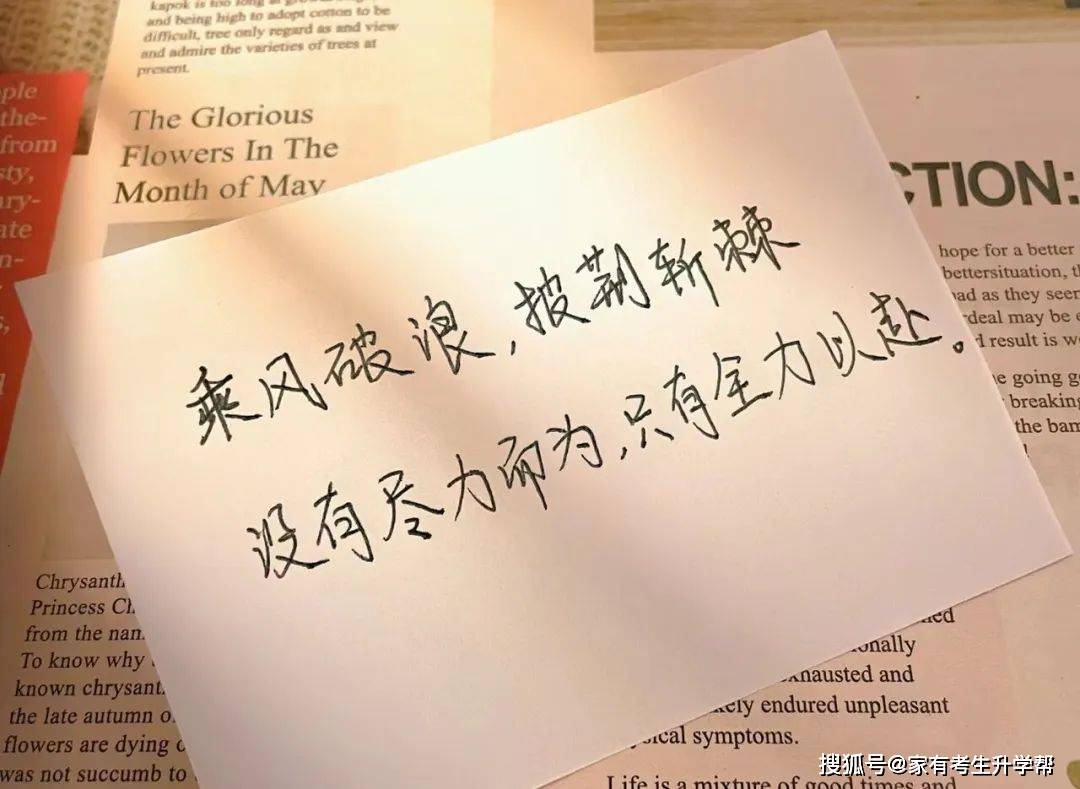 kapok is too long
and being high to adopt cotton to be
difficult, tree only regard as and view
and admire the varieties of trees at
present.
The Glorious
Flowers In The
Month of May
ople
the-
from
sty,
ary-
ate
n-
s,
CTION:
hope for a better
bettersituation,
ad as they seem
deal may be
result is
going
breaking
the bam
乘风破浪，披荆斩棘
没有尽力而为，只有全力以赴。
Chrysanth
Princess Ch
from the nam
To know why
known chrysant
the late autumn o
flowers are dying
was not succumb to
onally
exhausted and
ely endured unpleasant
ical symptoms.
Life is a mixture of good times and
搜狐号@家有考生升学帮